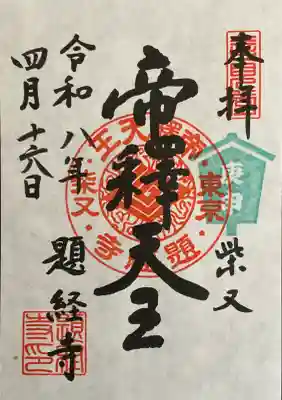 奉拝
柴又
帝釋天王
令和八年
四月十六日
題経寺
帝釋天王
東京
柴又
題経寺
庚申